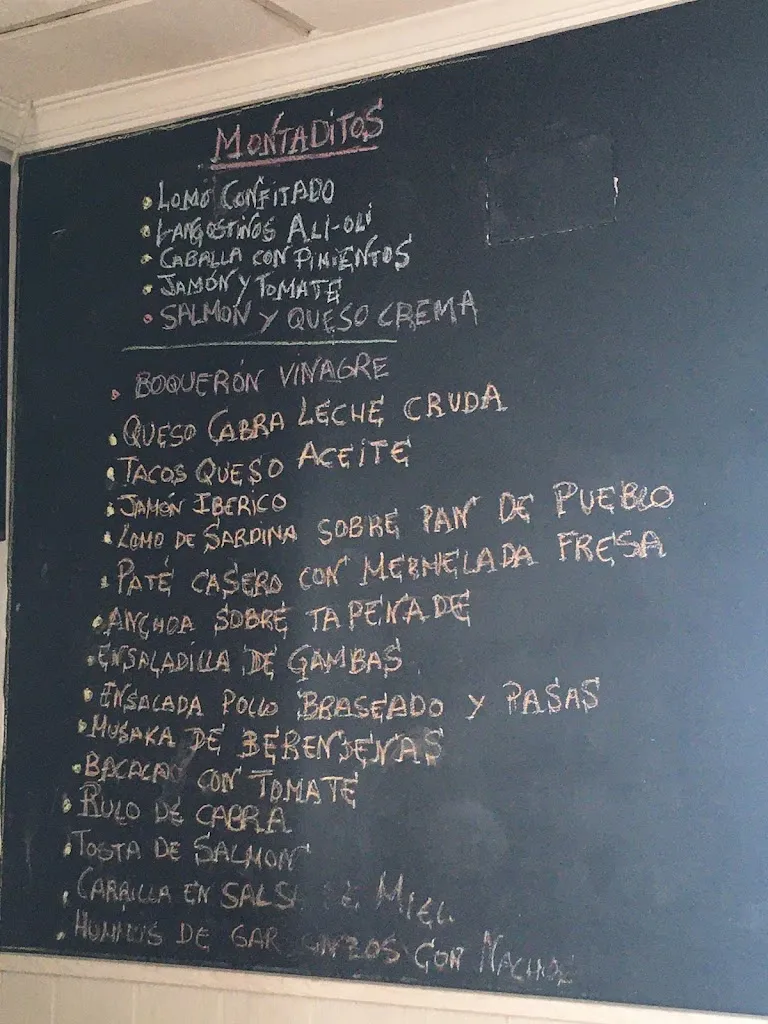 MONTADITOS
• LOMO CONFITADO
• LANGOSTINOS ALI-OLI
• CABALLA CON PIMIENTOS
• JAMÓN Y TOMATE
• SALMON Y QUESO CREMA
• BOQUERÓN VINAGRE
• QUESO CABRA LECHE CRUDA
• TACOS QUESO ACEITE
• JAMÓN IBERICO
• LOMO DE SARDINA SOBRE PAN DE PUEBLO
• PATÉ CASERO CON MERMELADA FRESA
• ANCHOA SOBRE TAPENADE
• ENSALADILLA DE GAMBAS
• ENSALADA POLLO BRASEADO Y PASAS
• MUSAKA DE BERENJENAS
• BACALAO CON TOMATE
• RULO DE CABRA
• TOSTA DE SALMON
• CARRILLA EN MIEL
• DE CON NACHOS